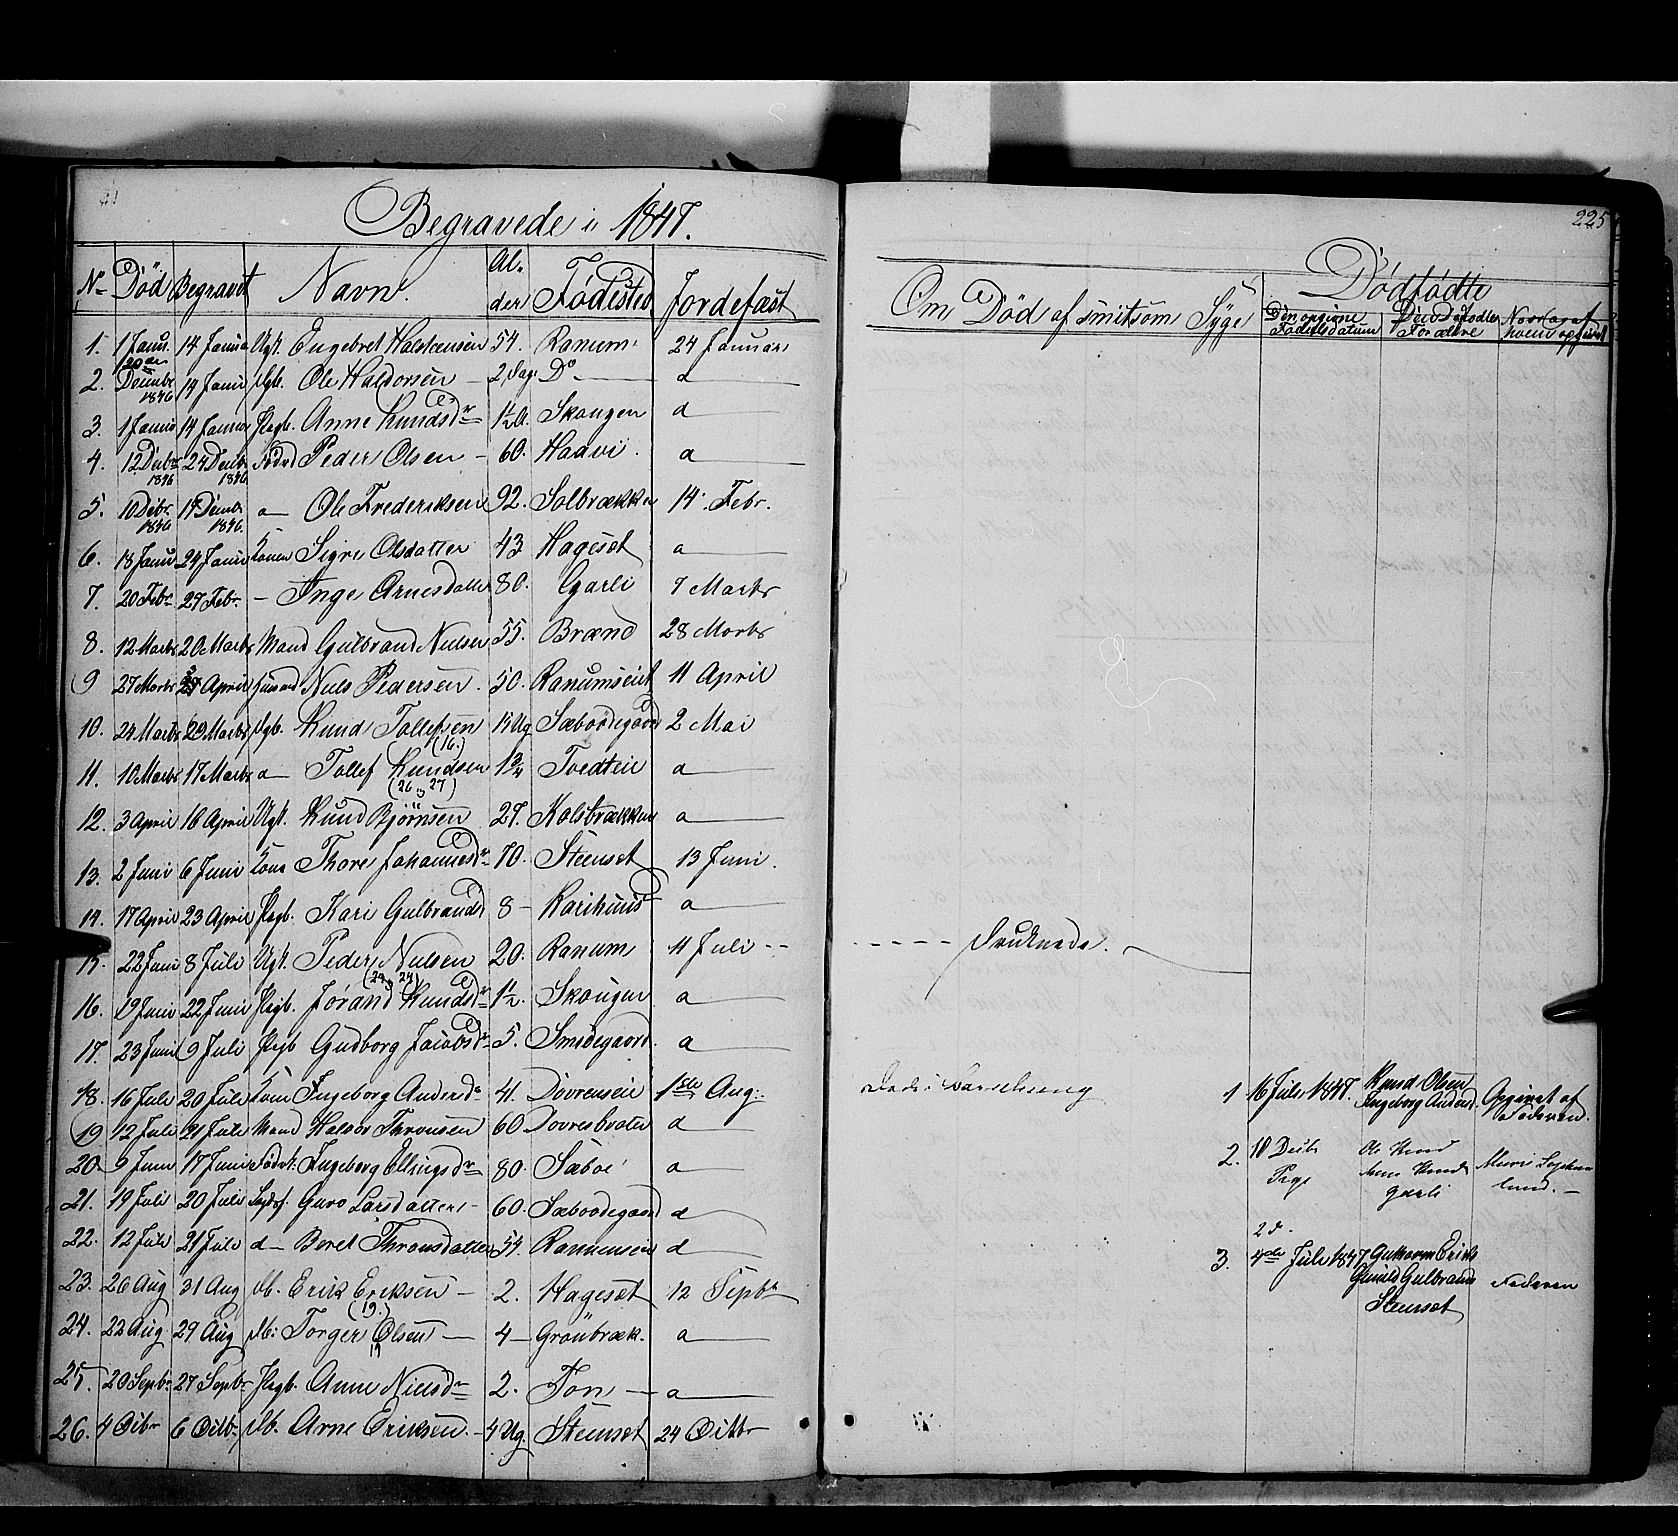 Begravede i 1847.
No Död Begravet Navn. Alder Födested Jordefæst
1. 1 Janu. 14 Janua Ugk. Engebret Halstensen 54. Ranum 24 Januar
2. 20de Decembr 1846 14 Janu Pgb. Ole Haldorsen – 2 Dage Do a
3. 1 Janu 14 Januar Pigb. Anne Knudsdr 1½ A. Skougen a
4. 12 Decbr 1846 24 Decbr 1846 Födrd Peder Olsen – 60. Haavi a
5. 10 Decbr 1846 19 Decembr 1846. a – Ole Frederiksen 92. Solbrækken 14. Febr.
6. 18 Janu 24 Janu Konen Sigre Olsdatter 43 Hageset a
7. 20 Febr 27 Febr. – Inge Arnesdatter 80. Garli 7 Marts
8. 12 Marts 20 Marts Mand Gulbrand Nielsen 55. Brænd 28 Marts
9 27 Marts April Huusmd Niels Pedersen. 50. Ranumseiet 11 April
10. 24 Marts 29 Marts Pgb. Knud Tollefsen 15 Ug Sæboödegaard 2 Mai
(16.)
11. 10 Marts 17 Marts a – Tollef Knudsen 1¾ Tvedteie a
(26 og 27)
12. 3 April 16 April Ugk. Knud Björnsen 27. Kolsbrækken a
13. 2 Juni 6 Juni Kone Thore Johannesdr 70. Steenset 13 Juni.
14. 17 April 23 April Pigb. Kari Gulbrandsd 8 – Karihuus a
15. 22 Juni 8 Juli Ugk. Peder Nielsen 20. Ranum 11 Juli --
(23 og 24)
16. 19 Juni 22 Juni Pigb. Jörand Knudsdr 1½. Skougen a
17. 23 Juni 9 Juli Pigb Gudborg Jacobsdr 5. Smedegaard. a
18. 16 Juli 20 Juli Kone Ingeborg Andersdr 41. Dovreneie 1ste Aug:
19 12 Juli 21 Juli Mand Haldor Thronsen 60 Dovresbraaten d
20. 9 Juni 17 Juni Födrk: Ingeborg Ellingsdr 80. Sæboe a
21. 19 Juli 20 Juli Guro Larsdatter – 60. Sæboödegaard d
22. 12 Juli 21 Juli d – Beret Thronsdatter 54. Ranumseie d
23. 26 Aug 31 Aug Pb. Erik Eriksen – 2. Hageset 12 Septbr
(19.)
24. 22 Aug 29 Aug Pb: Torger Olsen – 4 – Grönbræk. a
19
25. 20 Septbr 27 Septbr Pigb. Anne Nielsdr 2. Ton – a
26. 4 Octbr 6 Octbr Pb. Arne Eriksen. – 4 Ug. Steenset 24 Octbr
225
Om Död af smitsom Syge
Dödfödte
Den opgivne Födselsdatum Forældre
---- Druknede.
Döde i Barselseng
1 16 Juli 1847. Knud Olsen Ingeborg Andersd. Opgivet af
2. 18 Decbr Pige Ole Knud Anne Knudsd Garli
2 D.
3. 4de Juli 1847 Guttorm Eriks Gunild Gulbrands Steenset